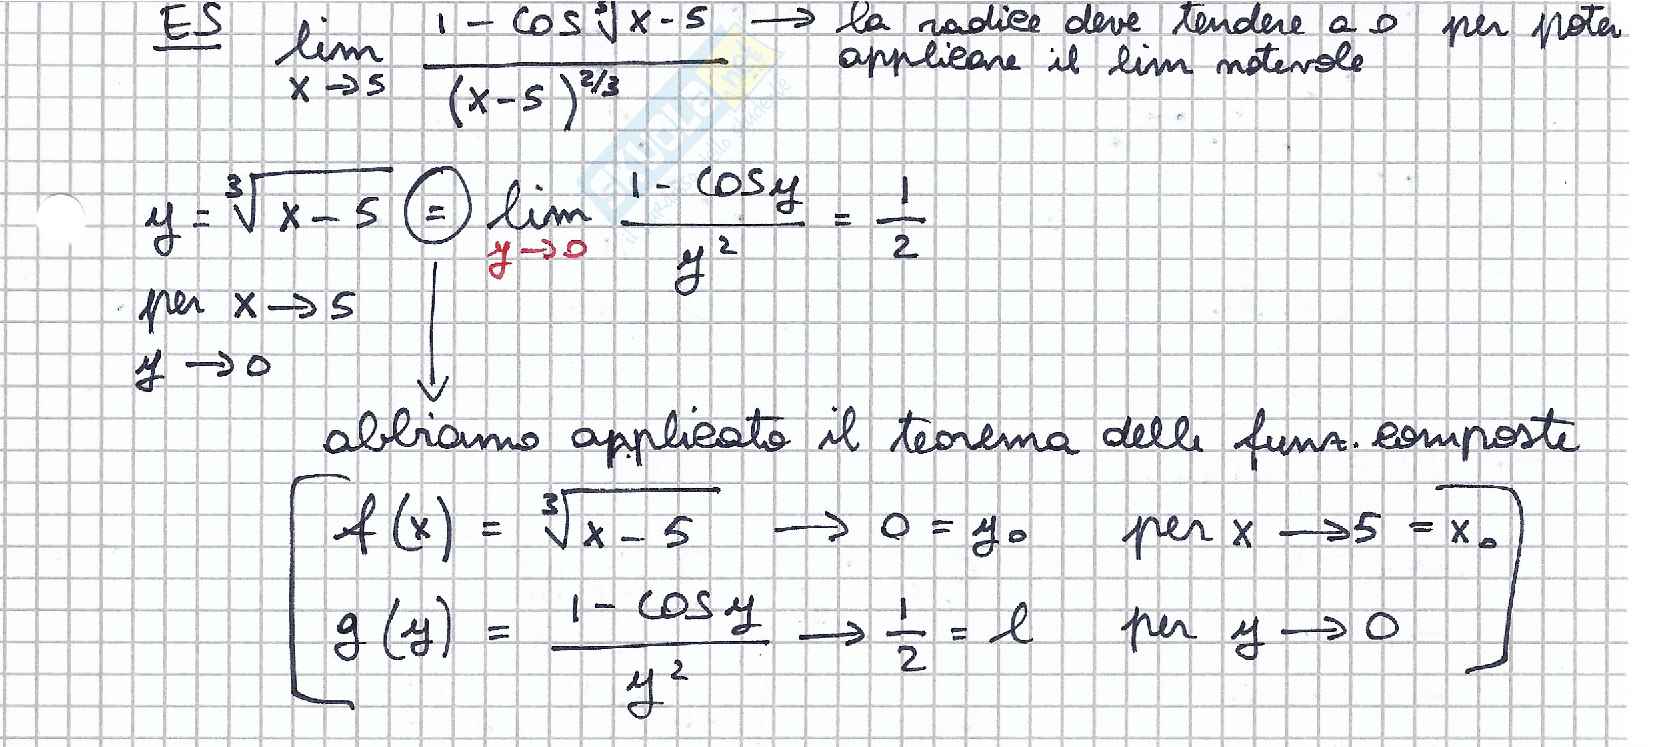 ES lim x→5 (1 - cos ∛x-5) / (x-5)^2/3 → la radice deve tendere a 0 per poter
applicare il lim notevole
y = ∛x-5 = lim y→0 (1 - cos y) / y² = 1/2
per x → 5
y → 0
abbiamo applicato il teorema delle funz. composte
f(x) = ∛x-5 → 0 = y₀ per x → 5 = x₀
g(y) = (1 - cos y) / y² → 1/2 = l per y → 0